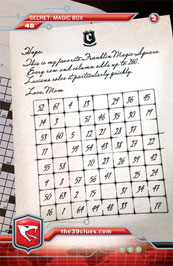 SECRET: MAGIC BOX
48
2
Hope,
This is my favorite Franklin Magic Square.
Every row and column adds up to 260.
Luciens solve it particularly quickly.
Love, Mom
52 61 4 13 29 36 45
14 3 51 46 35
53 60 5 12 21
11 6 59 43 38 27
55 58 10 23 26 39 42
9 8 57 40
50 2 15 31 34
16 1 64 49 33 17
the39clues.com